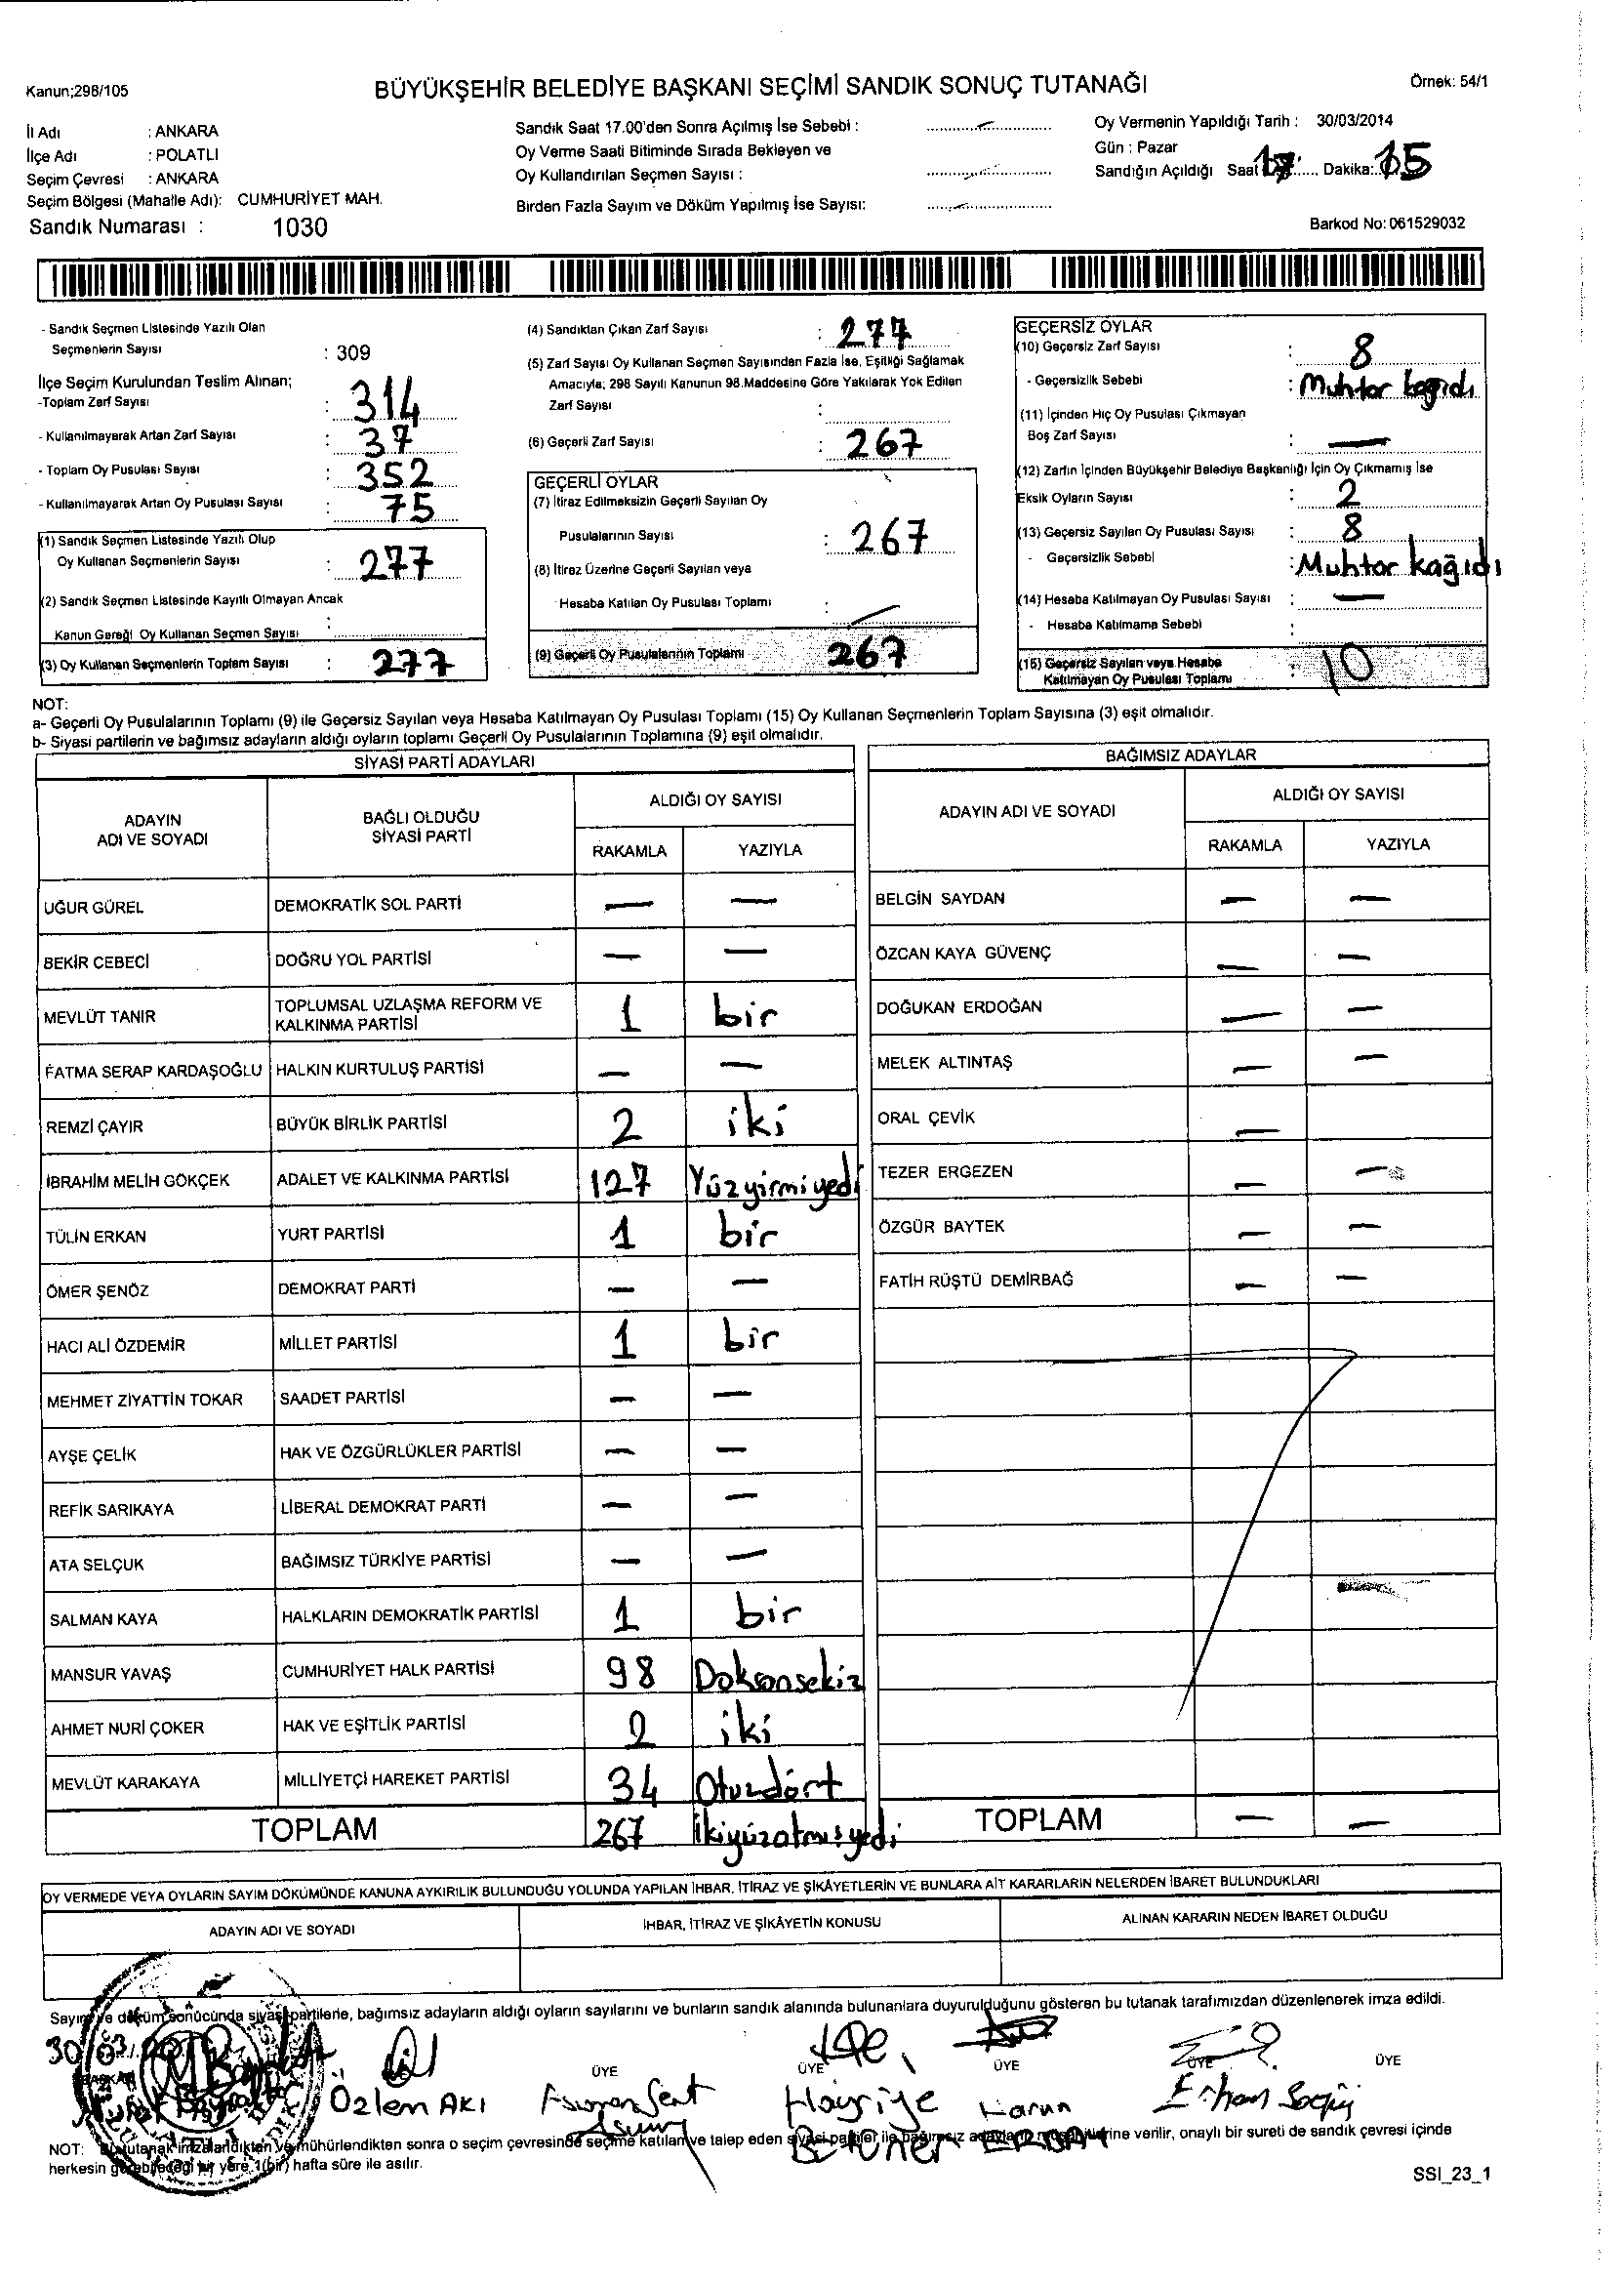 Kanun;298/105
BÜYÜKŞEHİR BELEDİYE BAŞKANI SEÇİMİ SANDIK SONUÇ TUTANAĞI
Örnek: 54/1
İl Adı : ANKARA
İlçe Adı : POLATLI
Seçim Çevresi : ANKARA
Seçim Bölgesi (Mahalle Adı): CUMHURİYET MAH.
Sandık Numarası : 1030
Sandık Saat 17.00'den Sonra Açılmış İse Sebebi :
Oy Verme Saati Bitiminde Sırada Bekleyen ve
Oy Kullandırılan Seçmen Sayısı :
Birden Fazla Sayım ve Döküm Yapılmış İse Sayısı:
Oy Vermenin Yapıldığı Tarih : 30/03/2014
Gün : Pazar
Sandığın Açıldığı Saat 17 Dakika: 15
Barkod No: 061529032
- Sandık Seçmen Listesinde Yazılı Olan
Seçmenlerin Sayısı : 309
İlçe Seçim Kurulundan Teslim Alınan;
-Toplam Zarf Sayısı : 314
- Kullanılmayarak Artan Zarf Sayısı : 37
- Toplam Oy Pusulası Sayısı : 352
- Kullanılmayarak Artan Oy Pusulası Sayısı : 75
(1) Sandık Seçmen Listesinde Yazılı Olup
Oy Kullanan Seçmenlerin Sayısı : 277
(2) Sandık Seçmen Listesinde Kayıtlı Olmayan Ancak
Kanun Gereği Oy Kullanan Seçmen Sayısı :
(3) Oy Kullanan Seçmenlerin Toplam Sayısı : 277
(4) Sandıktan Çıkan Zarf Sayısı : 277
(5) Zarf Sayısı Oy Kullanan Seçmen Sayısından Fazla İse, Eşitliği Sağlamak
Amacıyla; 298 Sayılı Kanunun 98.Maddesine Göre Yakılarak Yok Edilen
Zarf Sayısı :
(6) Geçerli Zarf Sayısı : 267
GEÇERLİ OYLAR
(7) İtiraz Edilmeksizin Geçerli Sayılan Oy
Pusulalarının Sayısı : 267
(8) İtiraz Üzerine Geçerli Sayılan veya
Hesaba Katılan Oy Pusulası Toplamı :
(9) Geçerli Oy Pusulalarının Toplamı 267
GEÇERSİZ OYLAR
(10) Geçersiz Zarf Sayısı : 8
- Geçersizlik Sebebi : Muhtar kağıdı
(11) İçinden Hiç Oy Pusulası Çıkmayan
Boş Zarf Sayısı : —
(12) Zarfın İçinden Büyükşehir Belediye Başkanlığı İçin Oy Çıkmamış İse
Eksik Oyların Sayısı : 2
(13) Geçersiz Sayılan Oy Pusulası Sayısı : 8
- Geçersizlik Sebebi : Muhtar kağıdı
(14) Hesaba Katılmayan Oy Pusulası Sayısı : —
- Hesaba Katılmama Sebebi :
(15) Geçersiz Sayılan veya Hesaba
Katılmayan Oy Pusulası Toplamı : 10
NOT:
a- Geçerli Oy Pusulalarının Toplamı (9) ile Geçersiz Sayılan veya Hesaba Katılmayan Oy Pusulası Toplamı (15) Oy Kullanan Seçmenlerin Toplam Sayısına (3) eşit olmalıdır.
b- Siyasi partilerin ve bağımsız adayların aldığı oyların toplamı Geçerli Oy Pusulalarının Toplamına (9) eşit olmalıdır.
SİYASİ PARTİ ADAYLARI
ADAYIN ADI VE SOYADI
BAĞLI OLDUĞU SİYASİ PARTİ
ALDIĞI OY SAYISI
RAKAMLA YAZIYLA
UĞUR GÜREL DEMOKRATİK SOL PARTİ — —
BEKİR CEBECİ DOĞRU YOL PARTİSİ — —
MEVLÜT TANIR TOPLUMSAL UZLAŞMA REFORM VE KALKINMA PARTİSİ 1 bir
FATMA SERAP KARDAŞOĞLU HALKIN KURTULUŞ PARTİSİ — —
REMZİ ÇAYIR BÜYÜK BİRLİK PARTİSİ 2 iki
İBRAHİM MELİH GÖKÇEK ADALET VE KALKINMA PARTİSİ 127 Yüzyirmiyedi
TÜLİN ERKAN YURT PARTİSİ 1 bir
ÖMER ŞENÖZ DEMOKRAT PARTİ — —
HACI ALİ ÖZDEMİR MİLLET PARTİSİ 1 bir
MEHMET ZİYATTİN TOKAR SAADET PARTİSİ — —
AYŞE ÇELİK HAK VE ÖZGÜRLÜKLER PARTİSİ — —
REFİK SARIKAYA LİBERAL DEMOKRAT PARTİ — —
ATA SELÇUK BAĞIMSIZ TÜRKİYE PARTİSİ — —
SALMAN KAYA HALKLARIN DEMOKRATİK PARTİSİ 1 bir
MANSUR YAVAŞ CUMHURİYET HALK PARTİSİ 98 Doksansekiz
AHMET NURİ ÇOKER HAK VE EŞİTLİK PARTİSİ 2 iki
MEVLÜT KARAKAYA MİLLİYETÇİ HAREKET PARTİSİ 34 Otuzdört
TOPLAM 267 İkiyüzatmışyedi
BAĞIMSIZ ADAYLAR
ADAYIN ADI VE SOYADI
ALDIĞI OY SAYISI
RAKAMLA YAZIYLA
BELGİN SAYDAN — —
ÖZCAN KAYA GÜVENÇ — —
DOĞUKAN ERDOĞAN — —
MELEK ALTINTAŞ — —
ORAL ÇEVİK —
TEZER ERGEZEN — —
ÖZGÜR BAYTEK — —
FATİH RÜŞTÜ DEMİRBAĞ — —
TOPLAM — —
OY VERMEDE VEYA OYLARIN SAYIM DÖKÜMÜNDE KANUNA AYKIRILIK BULUNDUĞU YOLUNDA YAPILAN İHBAR, İTİRAZ VE ŞİKÂYETLERİN VE BUNLARA AİT KARARLARIN NELERDEN İBARET BULUNDUKLARI
ADAYIN ADI VE SOYADI
İHBAR, İTİRAZ VE ŞİKÂYETİN KONUSU
ALINAN KARARIN NEDEN İBARET OLDUĞU
Sayım ve döküm sonucunda siyasi partilerle, bağımsız adayların aldığı oyların sayılarını ve bunların sandık alanında bulunanlara duyurulduğunu gösteren bu tutanak tarafımızdan düzenlenerek imza edildi.
30 03
ÜYE ÜYE ÜYE ÜYE ÜYE
Özlem AKI Hayriye Harun
NOT: Bu tutanak imzalandıktan ve mühürlendikten sonra o seçim çevresinde seçime katılan ve talep eden siyasi partiler ile bağımsız adayların müşahitlerine verilir, onaylı bir sureti de sandık çevresi içinde
herkesin görebileceği bir yere 1(bir) hafta süre ile asılır.
SSI_23_1